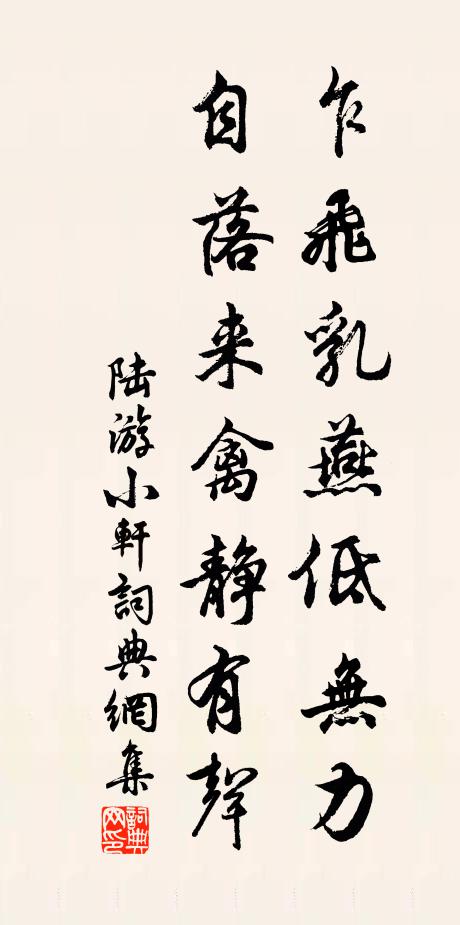 乍飛乳燕低無力
自落来禽静有聲
陆游小軒詞典網集
詞典网印